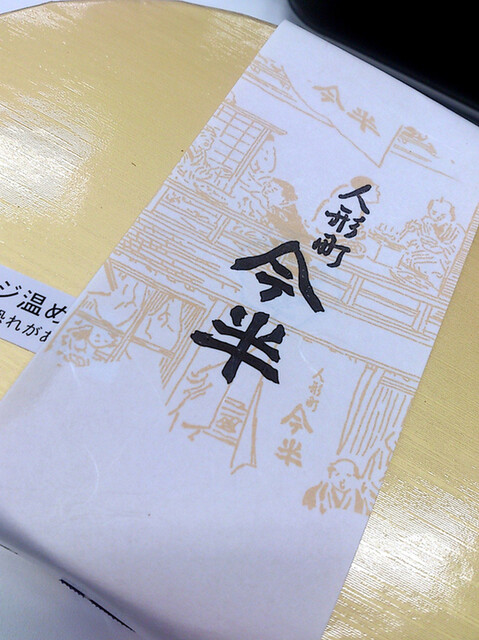 今半
人形町
今半
人形町
今半
ジ温め
恐れがあ